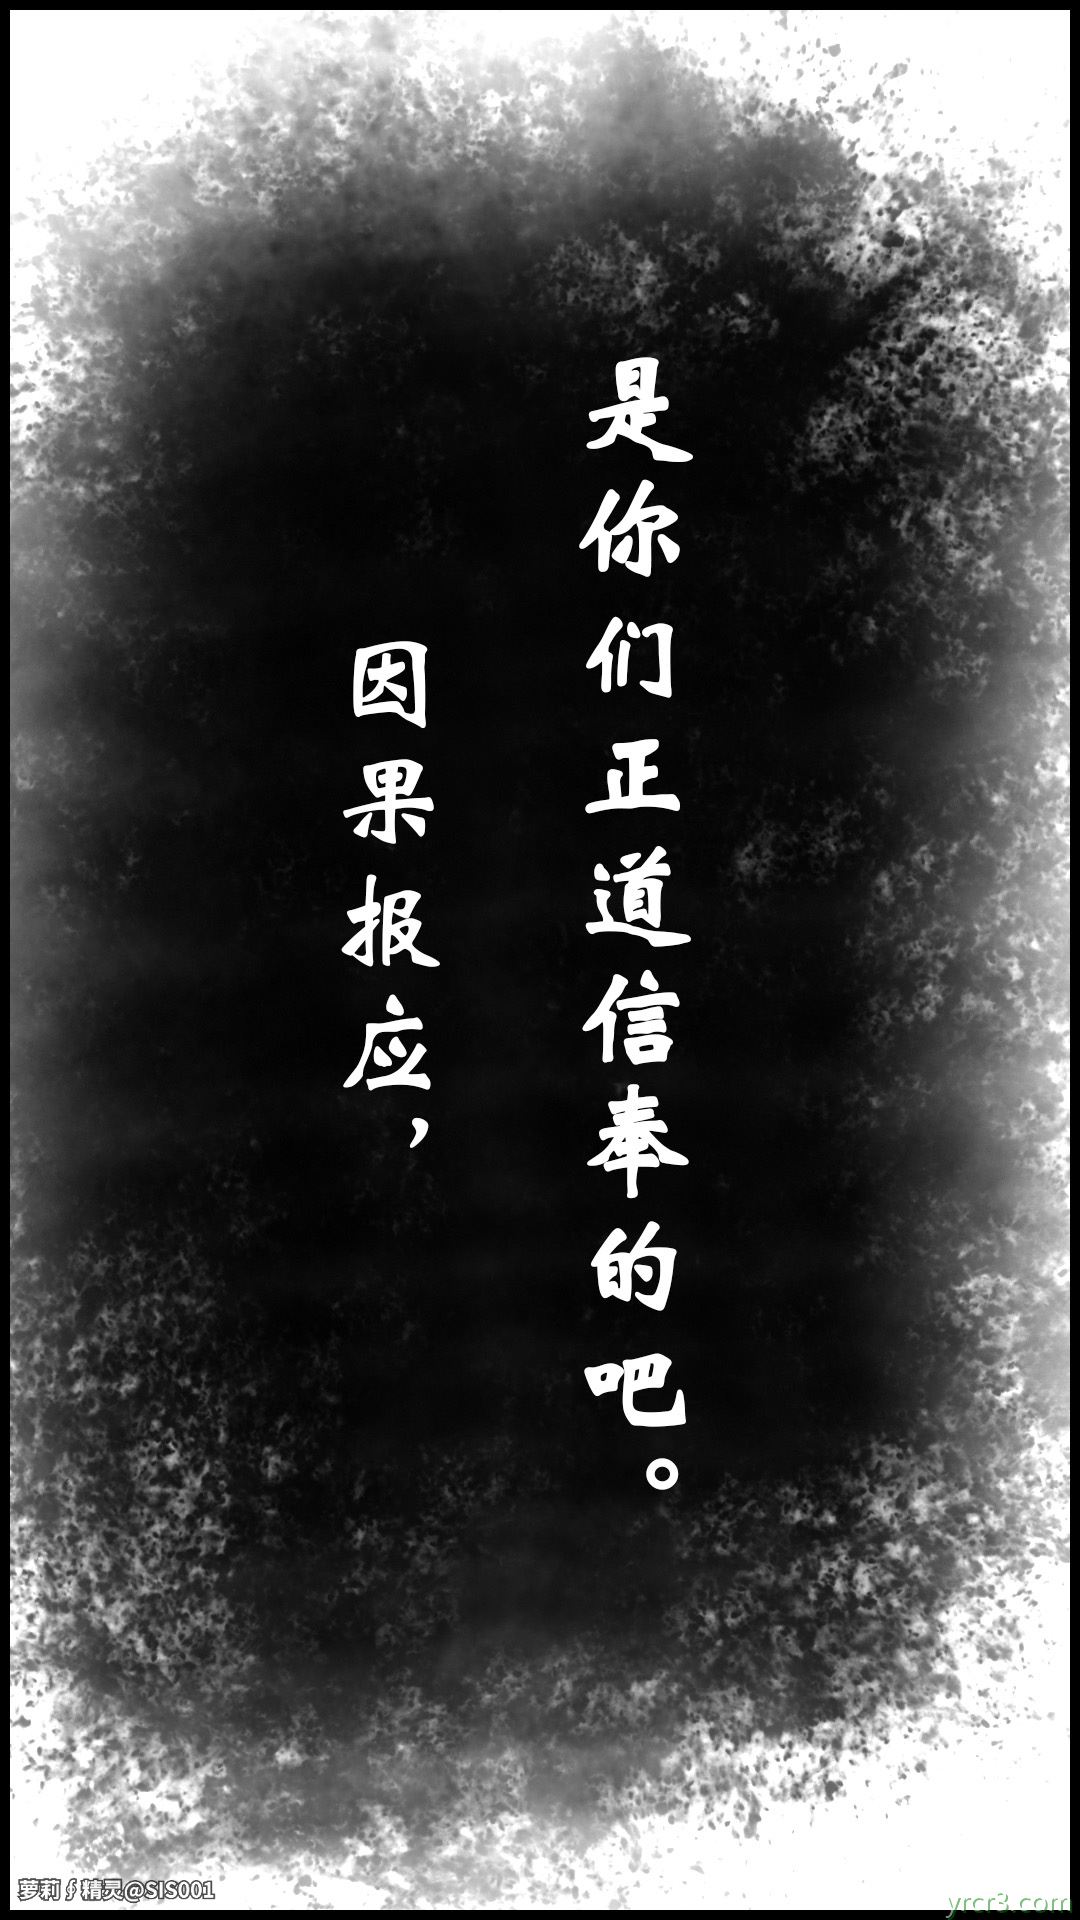 因果报应，
是你们正道信奉的吧。
萝莉∮精灵@SIS001
yrcr3.com